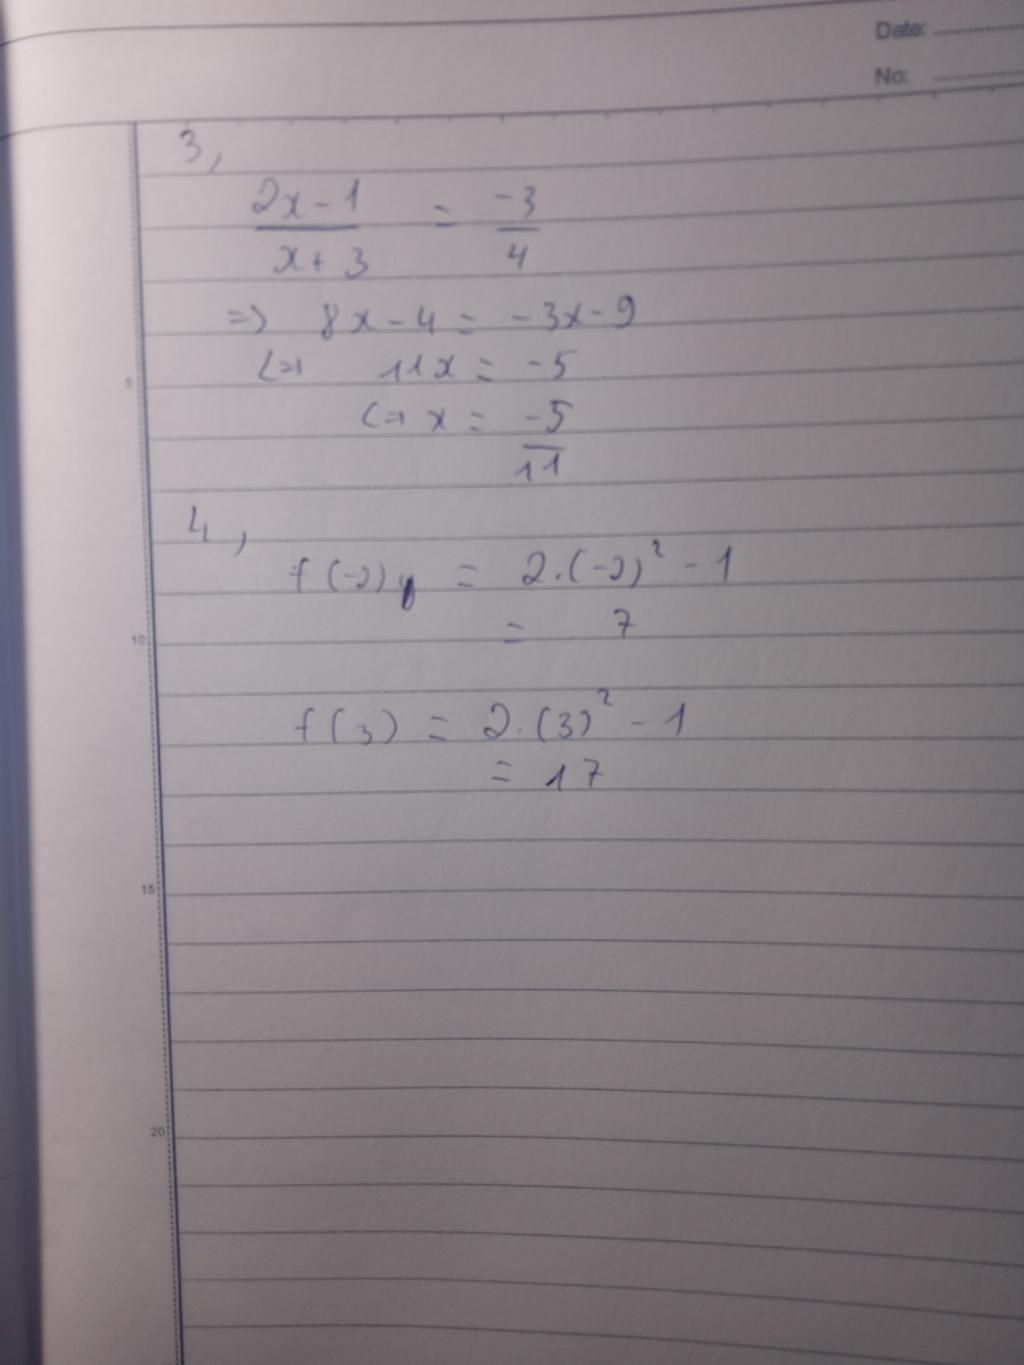 Date:
No:
3,
2x - 1 / x + 3 = -3 / 4
=> 8x - 4 = -3x - 9
<=> 11x = -5
<=> x = -5 / 11
4,
f(-2) = 2.(-2)² - 1
= 7
f(3) = 2.(3)² - 1
= 17
5
10
15
20